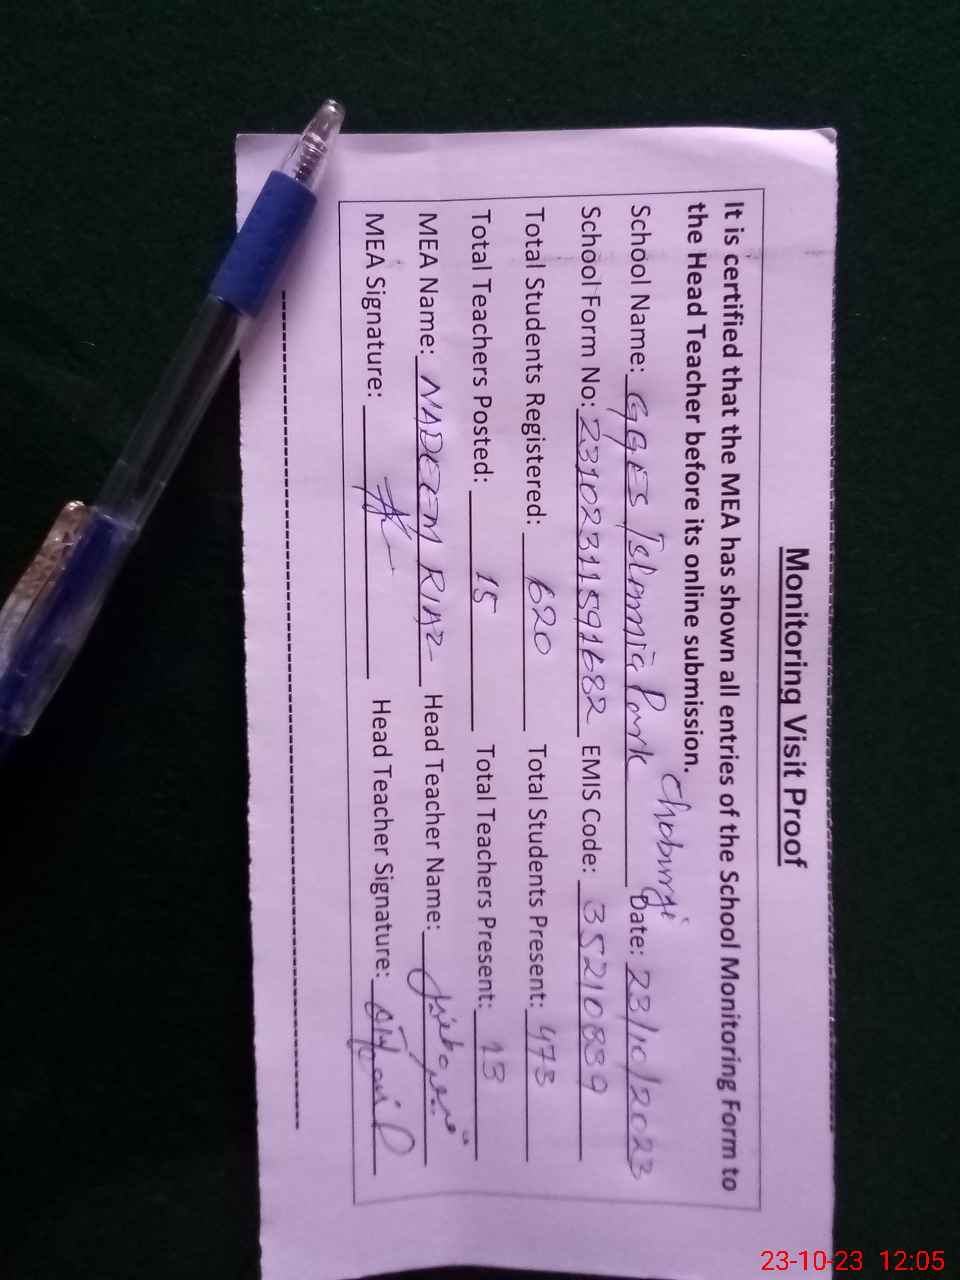 Monitoring Visit Proof
It is certified that the MEA has shown all entries of the School Monitoring Form to
the Head Teacher before its online submission.
School Name: GGES Islamia Park Choburgi Date: 23/10/2023
School Form No: 23102311591682 EMIS Code: 35210839
Total Students Registered: 620 Total Students Present: 473
Total Teachers Posted: 15 Total Teachers Present: 13
MEA Name: NADEEM RIAZ Head Teacher Name:
MEA Signature: Head Teacher Signature:
23-10-23 12:05